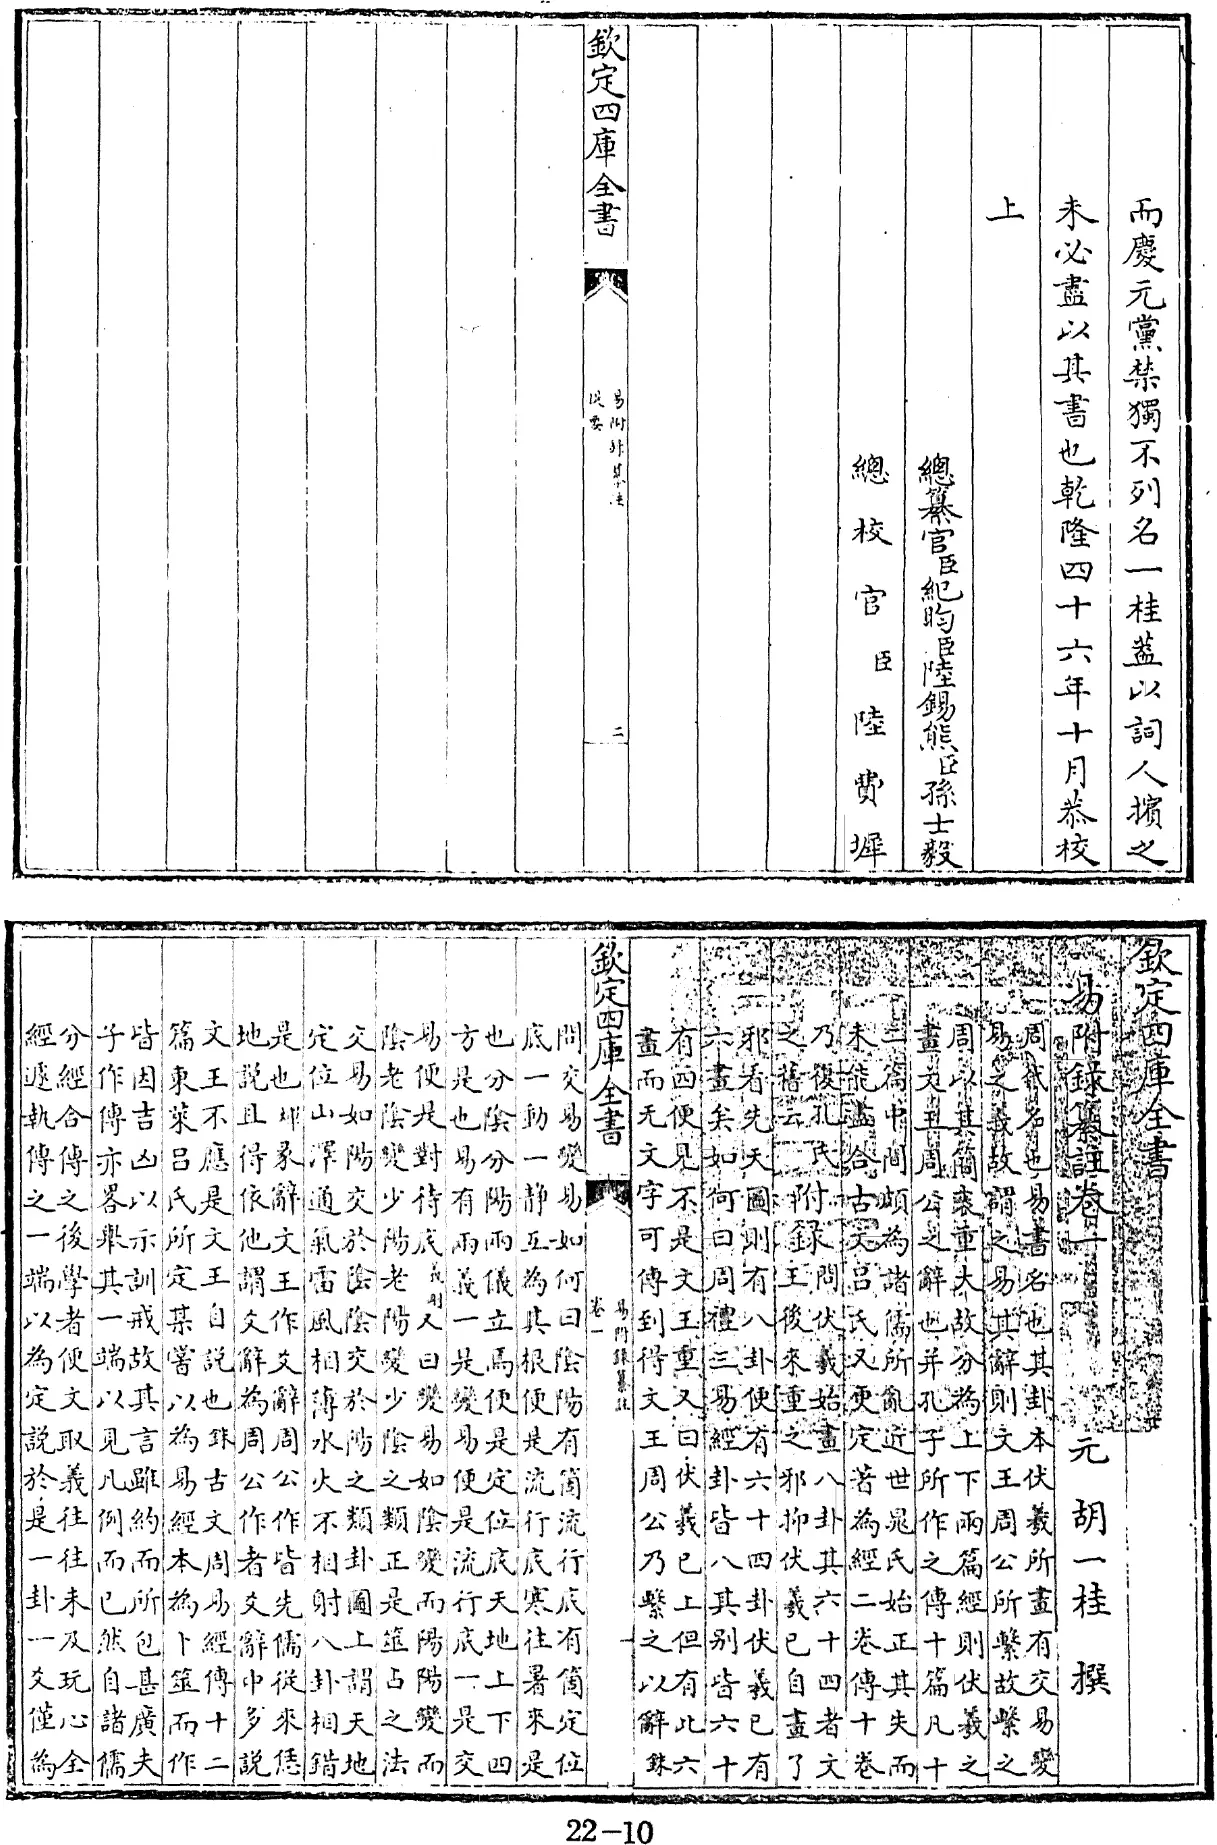 而慶元黨禁獨不列名一桂葢以詞人擯之
未必盡以其書也乾隆四十六年十月恭校
上
總纂官臣紀昀臣陸錫熊臣孫士毅
總校官臣陸費墀
欽定四庫全書
易附録纂註
提要
二
欽定四庫全書
易附録纂註卷一
元 胡一桂 撰
周代名也易書名也其卦本伏羲所畫有交易變
易之義故謂之易其辭則文王周公所繫故繫之
周以其簡袠重大故分為上下兩篇經則伏羲之
畫文王周公之辭也并孔子所作之傳十篇凡十
二篇中間頗為諸儒所亂近世晁氏始正其失而
未能盡合古文呂氏又更定著為經二卷傳十卷
乃復孔氏
之舊云
附録
問伏羲始畫八卦其六十四者文
王後來重之邪抑伏羲已自畫了
邪看先天圖則有八卦便有六十四卦伏羲已有
六畫矣如何曰周禮三易經卦皆八其别皆六十
有四便見不是文王重又曰伏羲已上但有此六
畫而无文字可傳到得文王周公乃繫之以辭銖
欽定四庫全書
易附録纂註
卷一
一
問交易變易如何曰陰陽有箇流行底有箇定位
底一動一静互為其根便是流行底寒往暑來是
也分陰分陽兩儀立焉便是定位底天地上下四
方是也易有兩義一是變易便是流行底一是交
易便是對待底義剛又曰變易如陰變而陽陽變而
陰老陰變少陽老陽變少陰之類正是筮占之法
交易如陽交於陰陰交於陽之類卦圖上謂天地
定位山澤通氣雷風相薄水火不相射八卦相錯
是也彖辭文王作爻辭周公作皆先儒從來恁
地説且得依他謂爻辭為周公作者爻辭中多説
文王不應是文王自説也銖古文周易經傳十二
篇東萊呂氏所定某嘗以為易經本為卜筮而作
皆因吉凶以示訓戒故其言雖約而所包甚廣夫
子作傳亦畧舉其一端以見凡例而已然自諸儒
分經合傳之後學者便文取義往往未及玩心全
經遽執傳之一端以為定説於是一卦一爻僅為
22-10